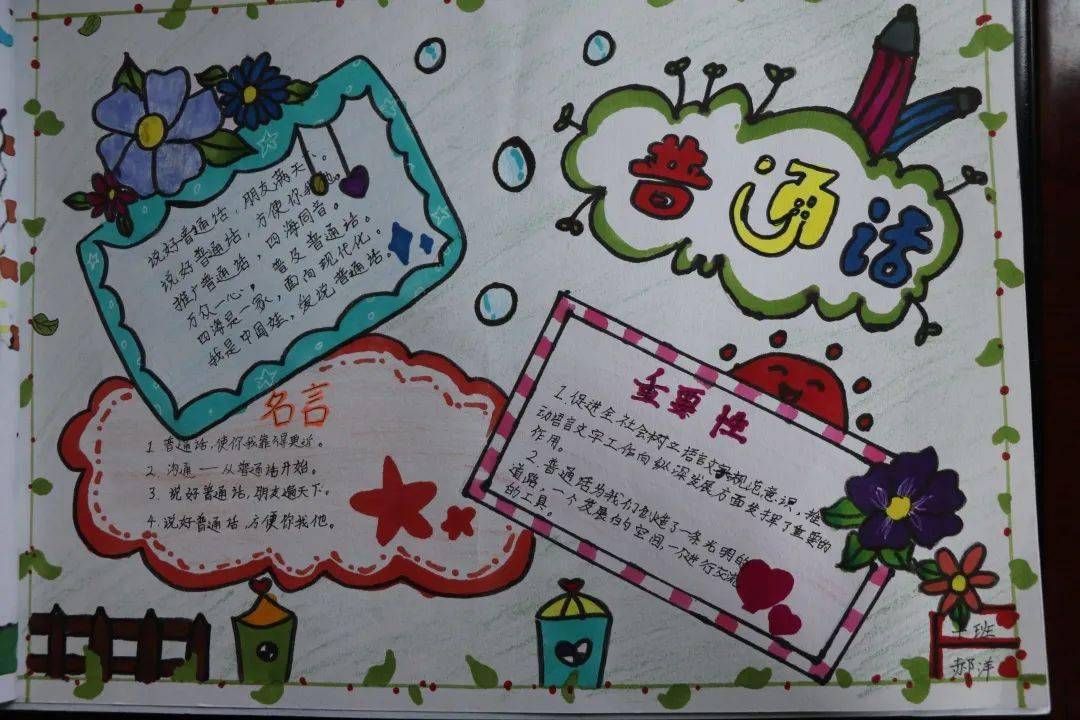 普通话
说好普通话，朋友满天下。
说好普通话，方便你我他。
推广普通话，四海同音。
万众一心，普及普通话。
四海是一家，面向现代化。
我是中国娃，爱说普通话。
名言
1. 普通话，使你我靠得更近。
2. 沟通——从普通话开始。
3. 说好普通话，朋友遍天下。
4. 说好普通话，方便你我他。
重要性
1. 促进全社会树立语言文字规范意识，推
动语言文字工作向纵深发展方面发挥了重要的
作用。
2. 普通话为我们创造了一条光明的
道路，一个发展的空间，一次进行交流
的工具。
班
郝洋